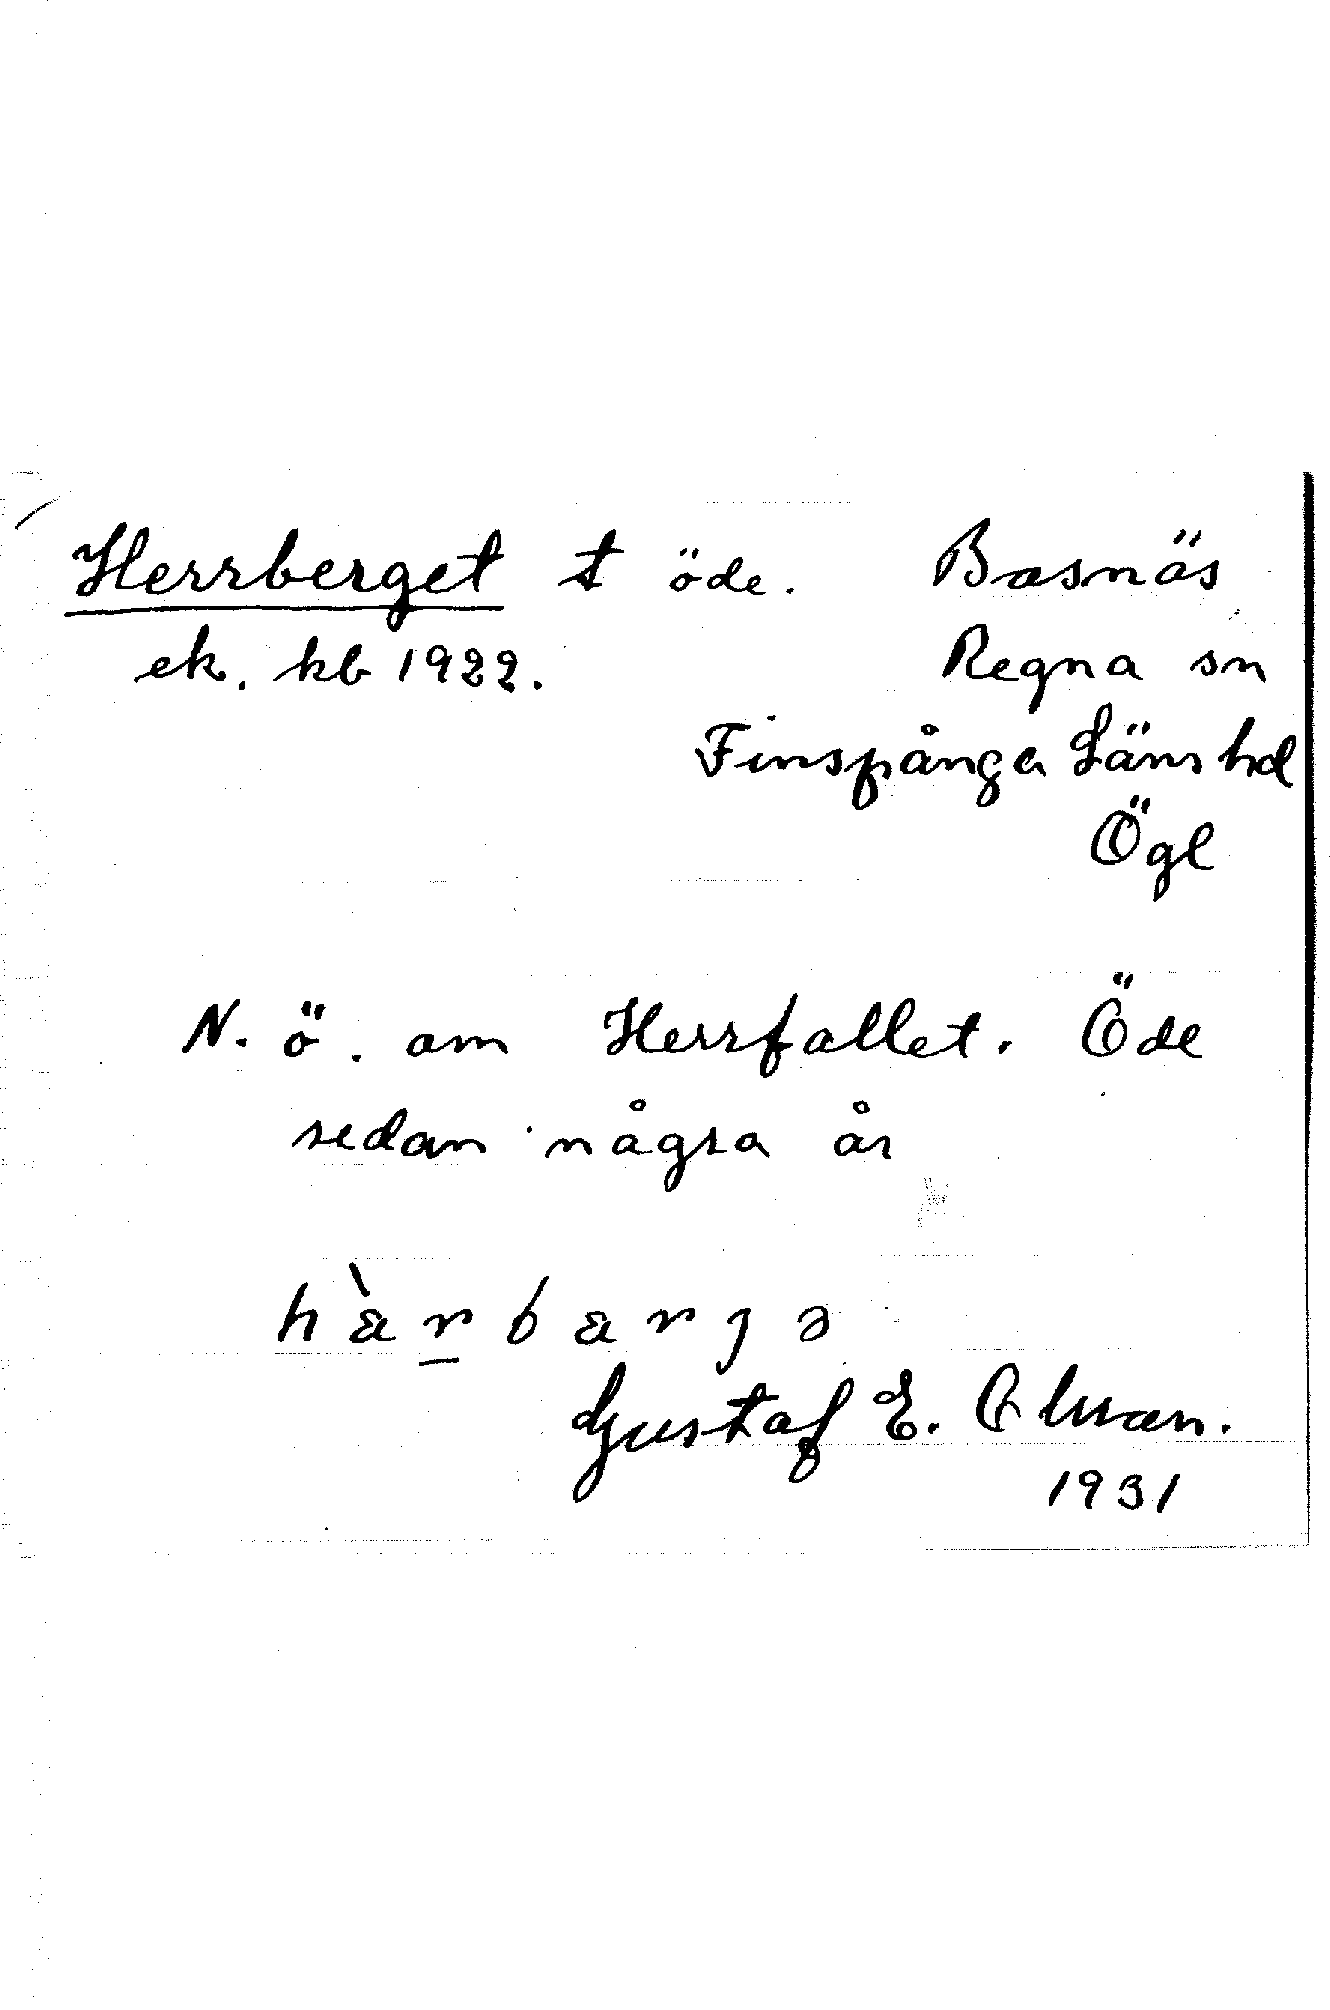 Herrberget t öde. Basnäs
ek. kb 1922. Regna sn
Finspånga Läns hd
Ögl
N. ö. om Herrfallet. Öde
sedan några år
hàrbarjə
Gustaf E. Olman.
1931